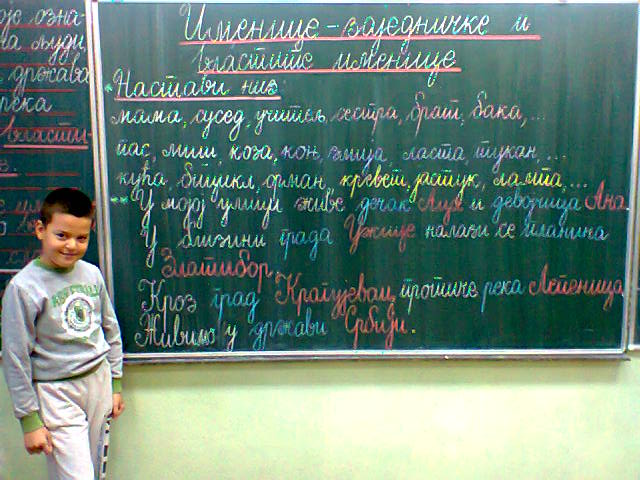 је озна-
на људи,
држава
река
власти-
Именице - заједничке и
властите именице
*Настави низ:
мама, сусед, учитељ, сестра, брат, бака, ...
пас, миш, коза, коњ, змија, ласта, тукан, ...
кућа, бицикл, орман, кревет, јастук, лампа, ...
**У мојој улици живе дечак Аца и девојчица Ана.
У близини града Ужице налази се планина
Златибор.
Кроз град Крагујевац протиче река Лепеница.
Живимо у држави Србији.